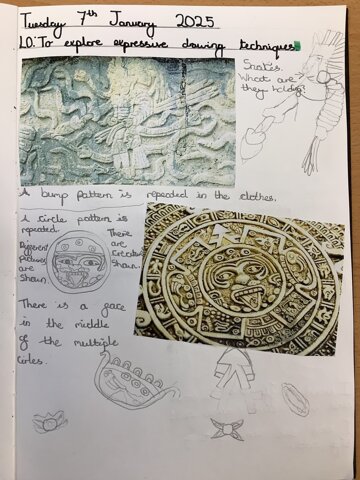 Tuesday 7th January 2025
LO: To explore expressive drawing techniques
Snakes.
What are
they holding?
A bump pattern is repeaded in the clothes.
A circle pattern is
repeated.
Different
pictures
are
Shown
There
are
Shown.
There is a face
in the middle
of the multiple